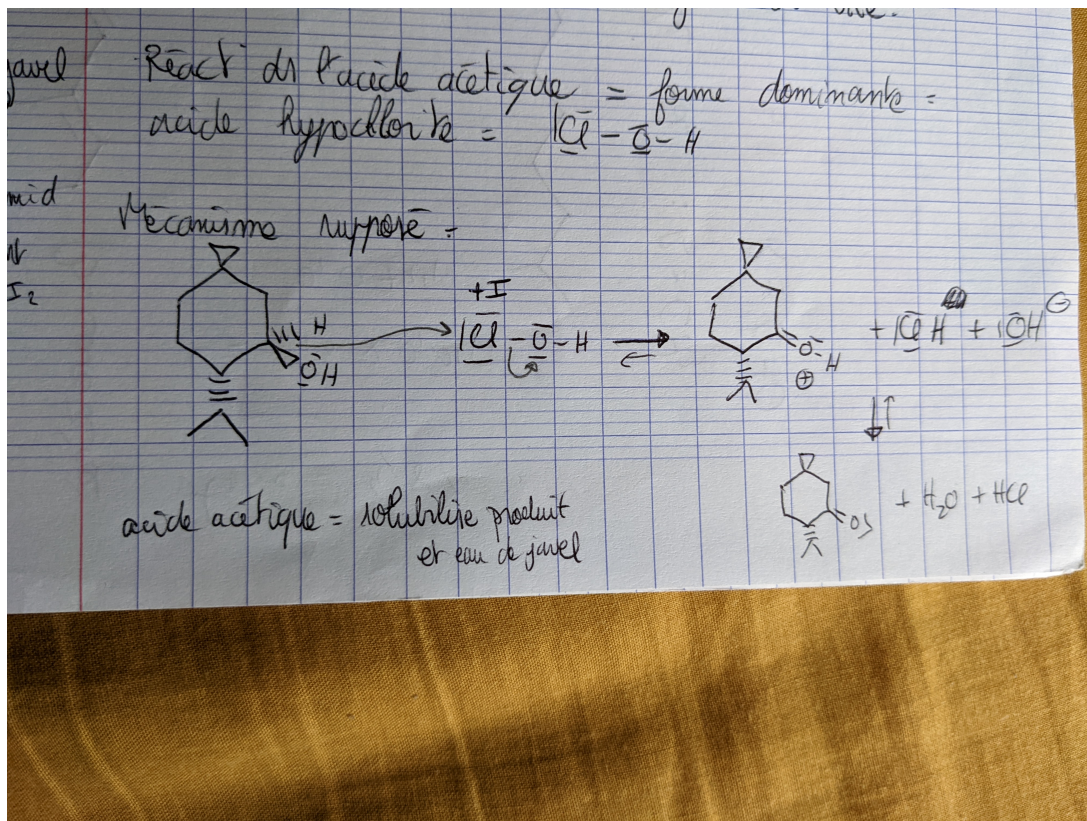 javel
Réact° ds l'acide acétique = forme dominante =
acide hypochlorite = |Cl - O - H
mid
I2
Mécanisme supposé =
H
OH
+I
|Cl - O - H
O H
⊕
+ |Cl H + |OH ⊖
acide acétique = solubilise produit
et eau de javel
O
+ H2O + HCl